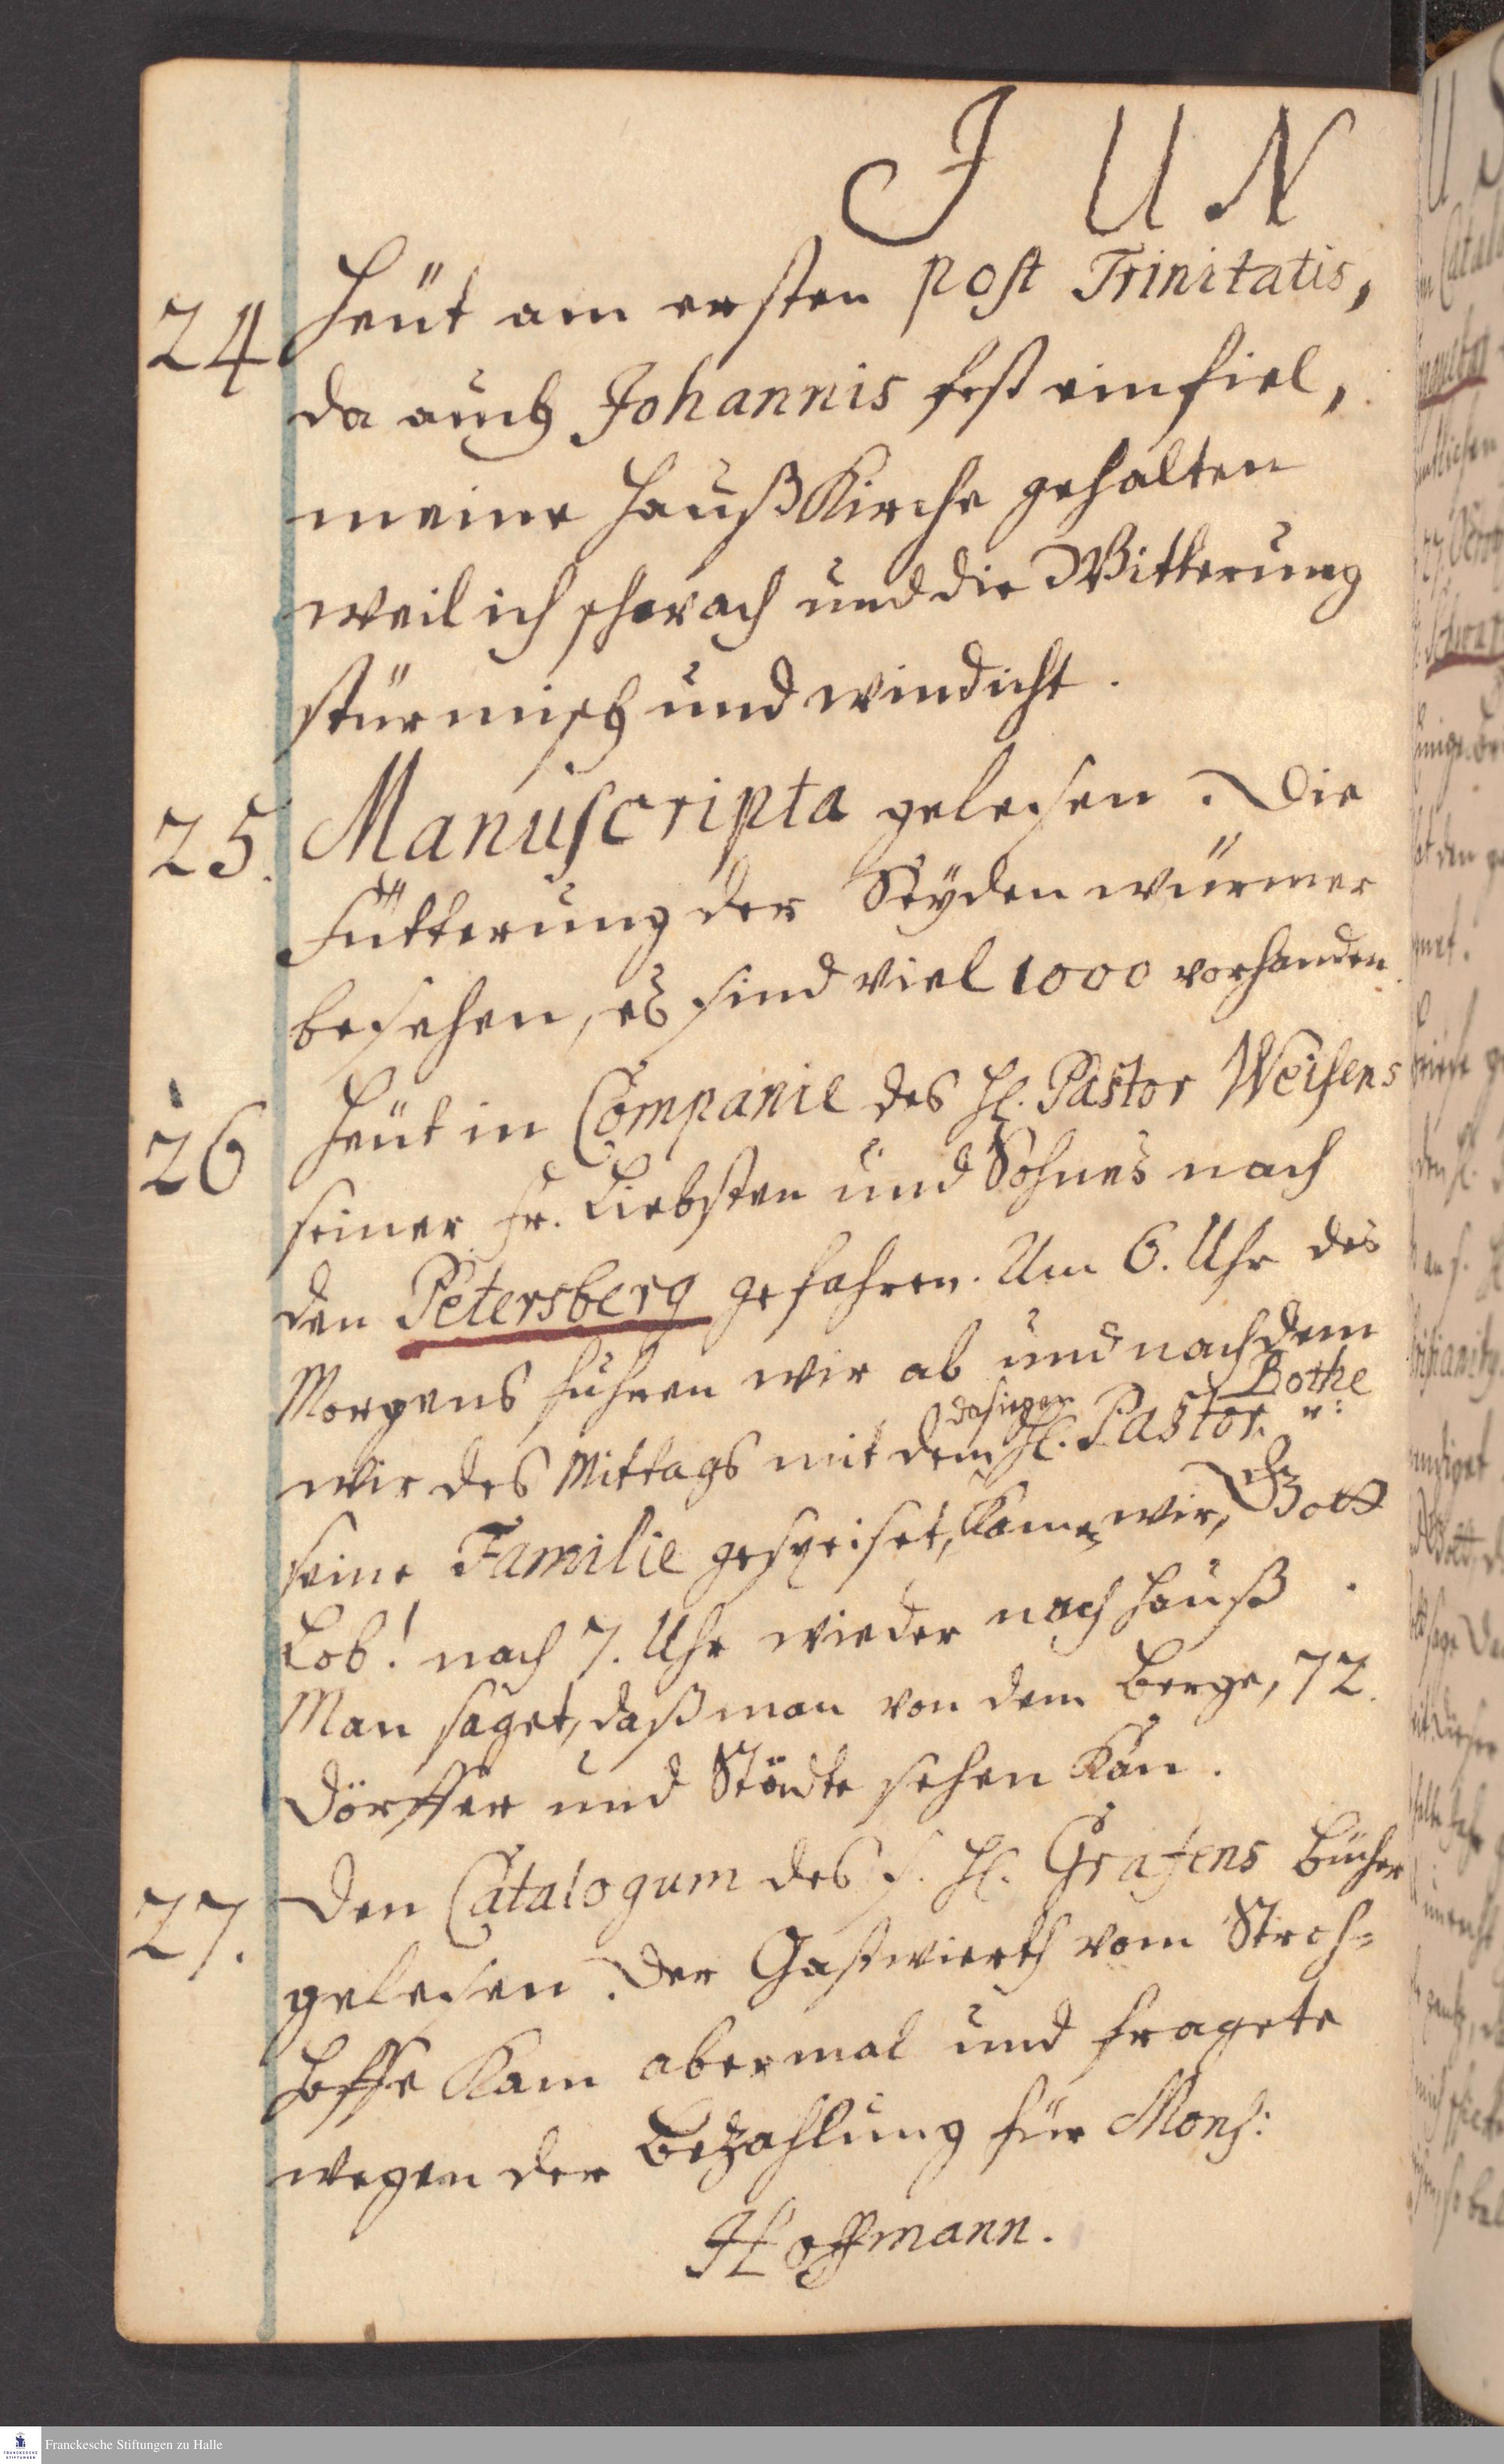 JUN
24 Heüt am ersten post Trinitatis,
da auch Johannis fest einfiel,
meine Hauß Kirche gehalten
weil ich schwach und die Witterung
stürmisch und windicht.
25. Manuscripta gelesen. Die
Fütterung der Seÿden würmer
besehen, es sind viel 1000 vorhanden.
26 Heüt in Companie des H. Pastor Weisens
seiner fr. Liebsten und Sohnes nach
den Petersberg gefahren. Um 6. Uhr des
Morgens fuhren wir ab und nach dem
wir des Mittags mit dem dasigen H. Pastor. Bothe u:
seine Familie gespeiset, kamen wir, Gott
Lob! nach 7. Uhr wieder nach Hauß.
Man saget, daß man von dem Berge, 72.
Dörffer und Städte sehen kan.
27. Den Catalogum des s. H. Grafens Bücher
gelesen. Der Gastwierth vom Stroh=
hoffe kam abermal und fragete
wegen der Bezahlung für Mons:
Hoffmann.
Franckesche Stiftungen zu Halle